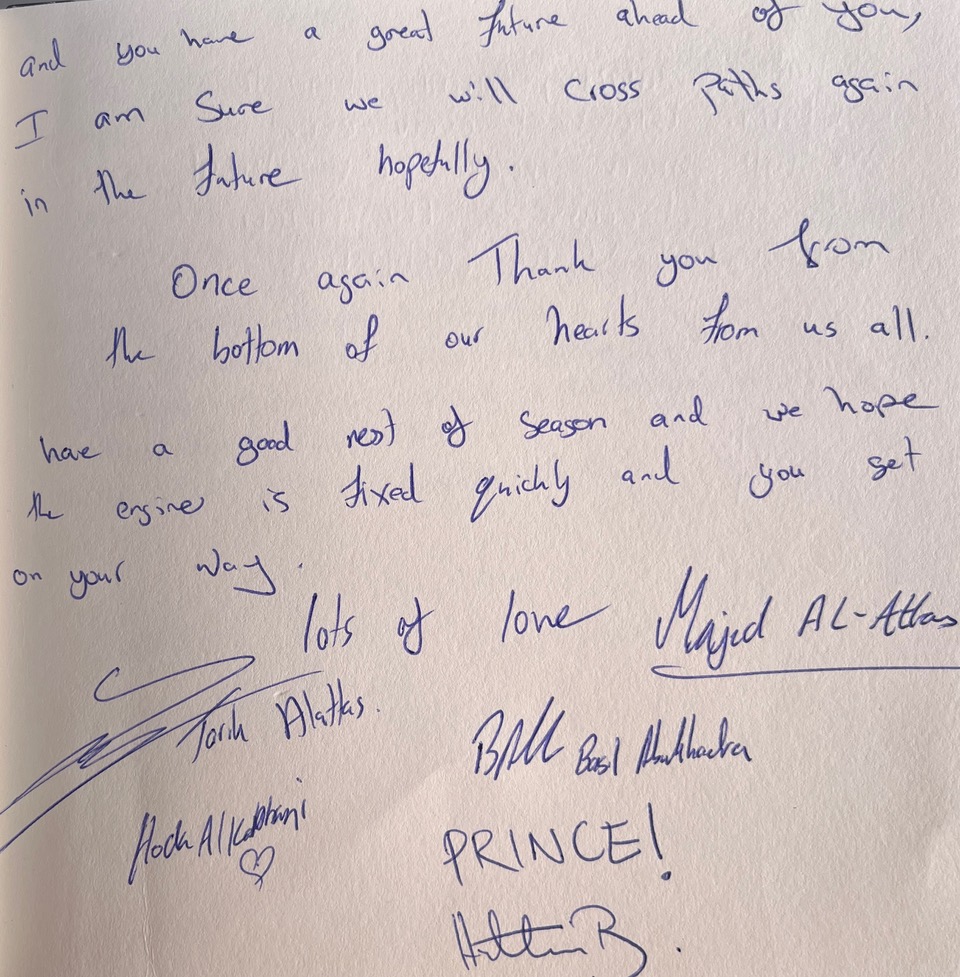 and you have a great future ahead of you,
I am Sure we will cross paths again
in the future hopefully.
Once again Thank you from
the bottom of our hearts from us all.
have a good rest of season and we hope
the engine is fixed quickly and you get
on your way.
lots of love Majed AL-Attas
Tarik Alattas.
Basil
PRINCE!